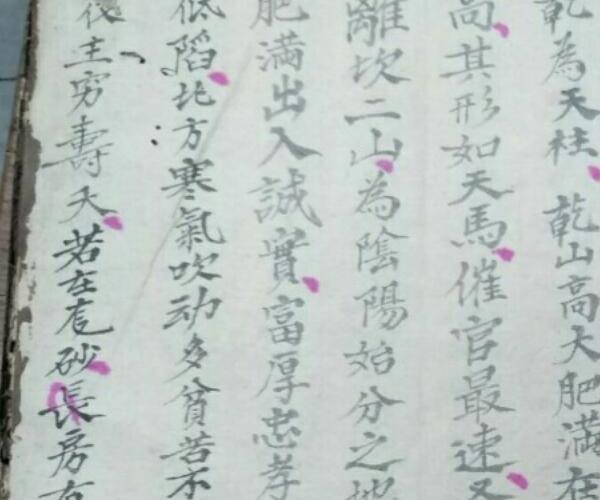 乾為天柱乾山高大肥満在
高其形如天馬催官最速
離坎二山為陰陽始分之
肥満出入誠實富厚忠孝
低陷北方寒氣吹动多貧苦不
主穷壽夭若在
砂長房有